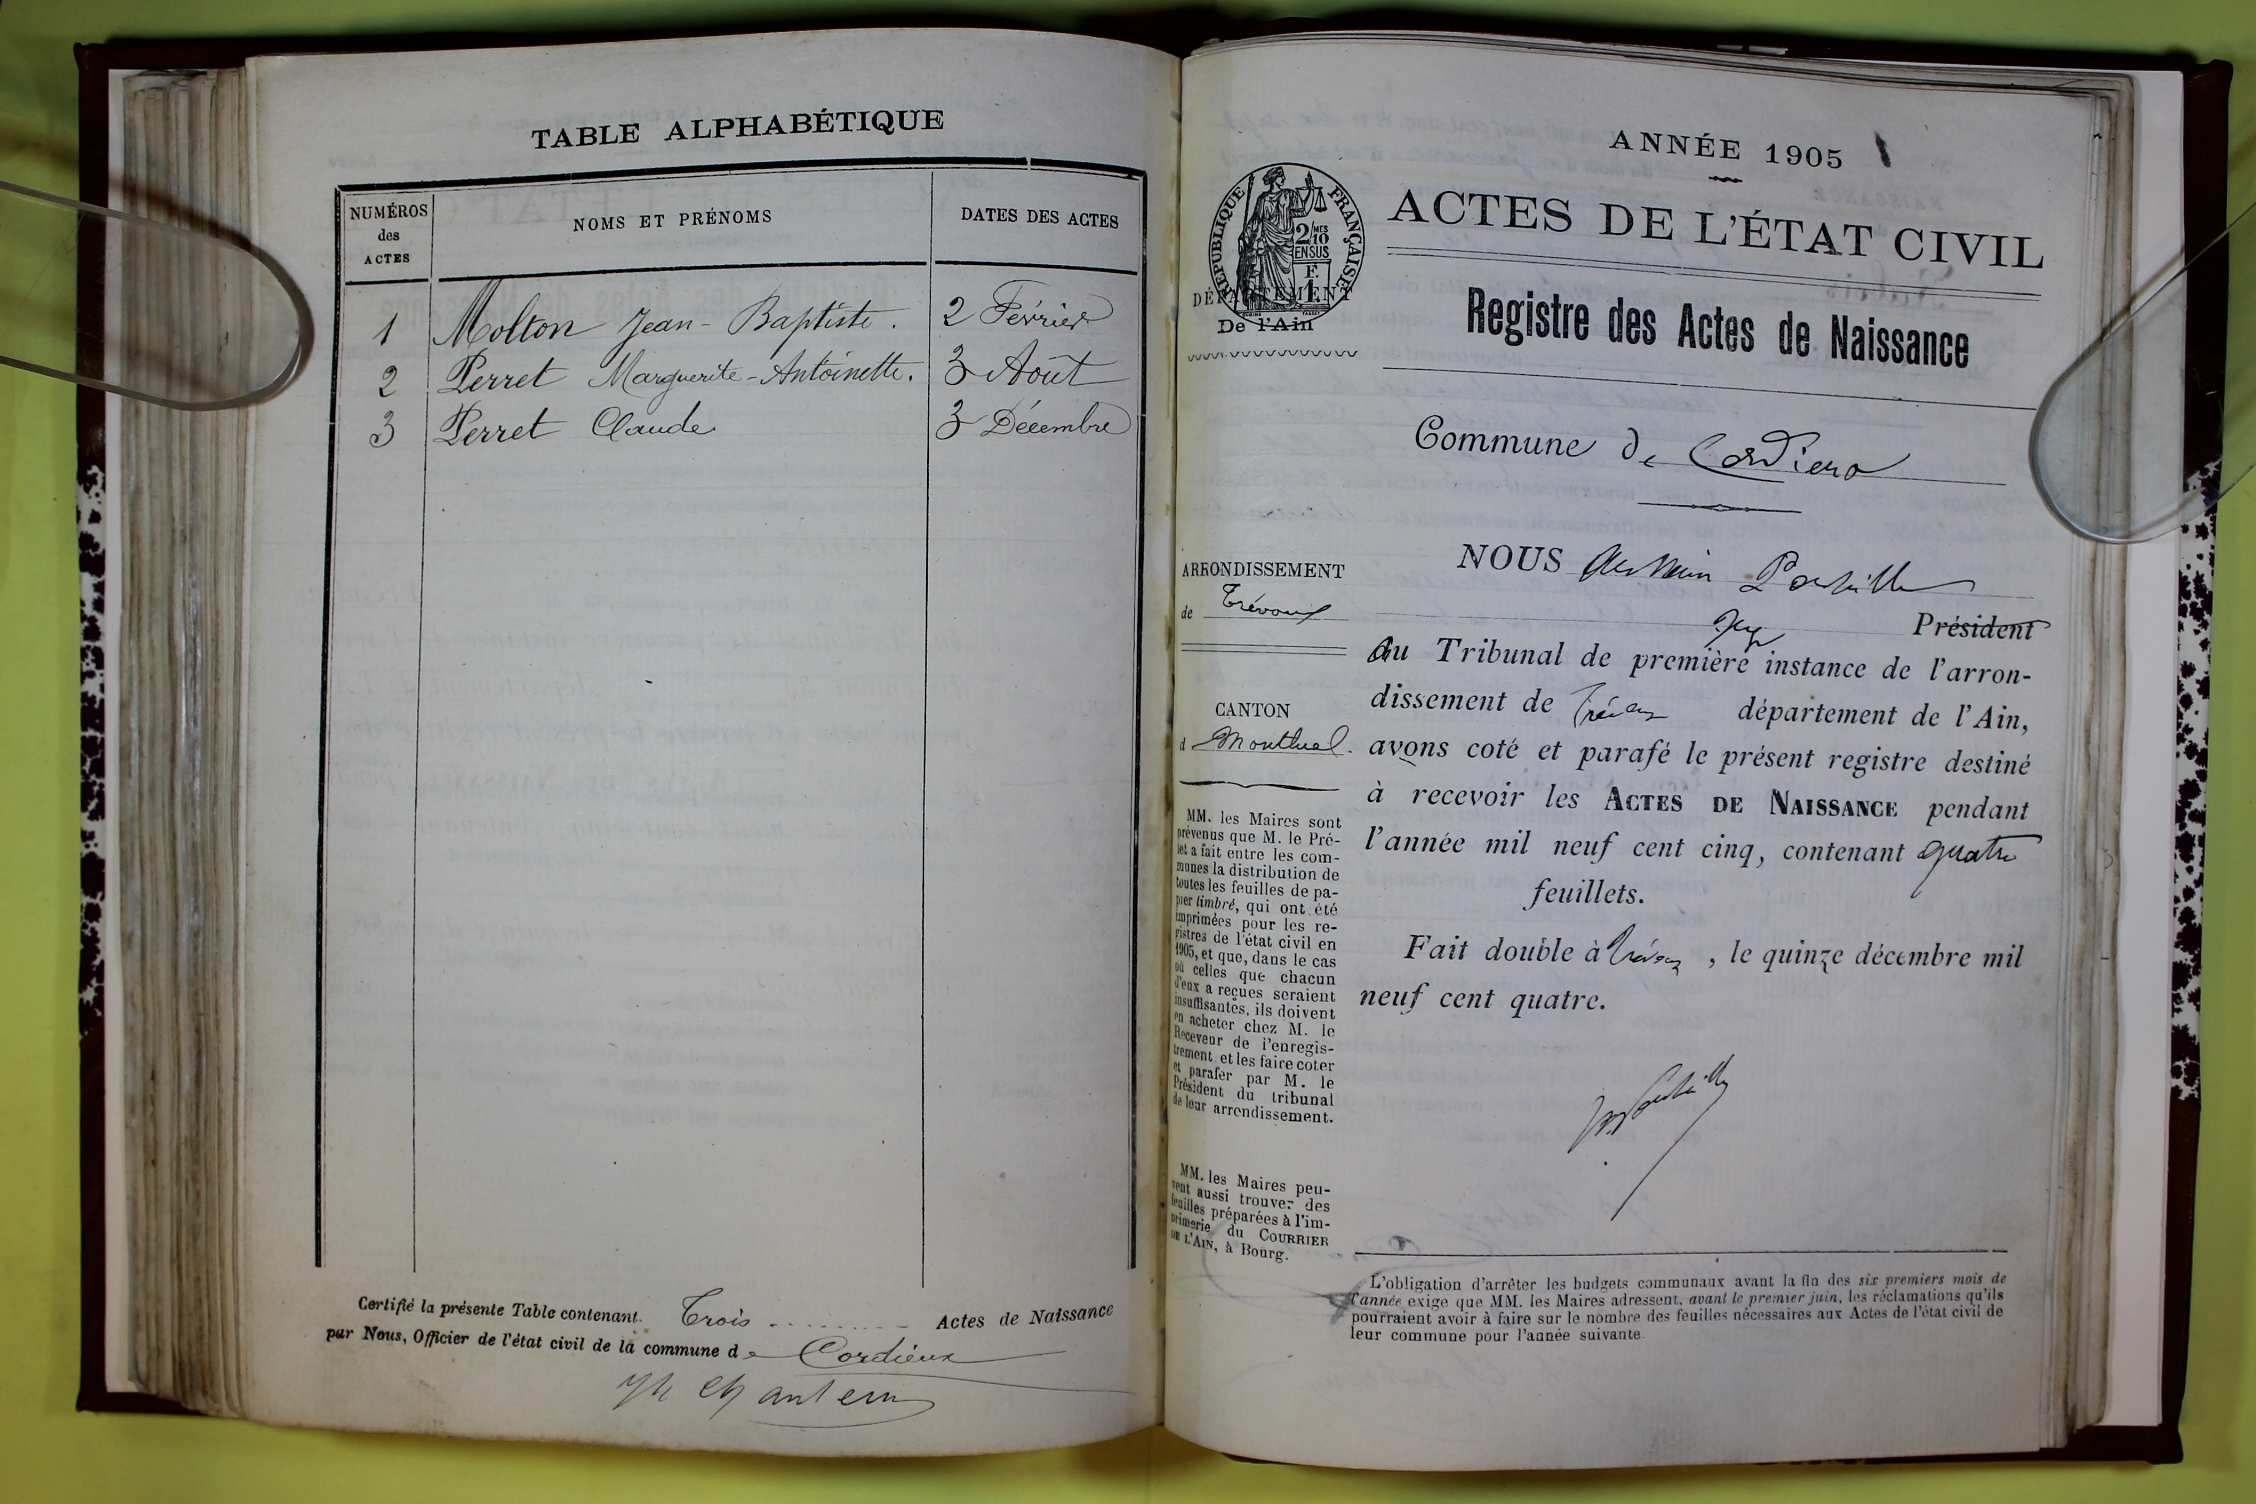 TABLE ALPHABÉTIQUE
NUMÉROS
des
ACTES
NOMS ET PRÉNOMS
DATES DES ACTES
1 Molton Jean-Baptiste. 2 Février
2 Perret Marguerite-Antoinette. 3 Août
3 Perret Claude 3 Décembre
Certifié la présente Table contenant. Trois Actes de Naissance
par Nous, Officier de l'état civil de la commune de Cordieux
ANNÉE 1905
RÉPUBLIQUE FRANÇAISE
2/10 MES
EN SUS
F.
1
DÉPARTEMENT
De l'Ain
ACTES DE L'ÉTAT CIVIL
Registre des Actes de Naissance
Commune de Cordieux
ARRONDISSEMENT
de Trévoux
CANTON
d Montluel.
MM. les Maires sont
prévenus que M. le Pré-
fet a fait entre les com-
munes la distribution de
toutes les feuilles de pa-
pier timbré, qui ont été
imprimées pour les re-
gistres de l'état civil en
1905, et que, dans le cas
où celles que chacun
d'eux a reçues seraient
insuffisantes, ils doivent
en acheter chez M. le
Receveur de l'enregis-
trement et les faire coter
et parafer par M. le
Président du tribunal
de leur arrondissement.
MM. les Maires peu-
vent aussi trouver des
feuilles préparées à l'im-
primerie du COURRIER
DE L'AIN, à Bourg.
NOUS
Juge Président
au Tribunal de première instance de l'arron-
dissement de Trévoux département de l'Ain,
avons coté et parafé le présent registre destiné
à recevoir les ACTES DE NAISSANCE pendant
l'année mil neuf cent cinq, contenant quatre
feuillets.
Fait double à Trévoux, le quinze décembre mil
neuf cent quatre.
L'obligation d'arrêter les budgets communaux avant la fin des six premiers mois de
l'année exige que MM. les Maires adressent, avant le premier juin, les réclamations qu'ils
pourraient avoir à faire sur le nombre des feuilles nécessaires aux Actes de l'état civil de
leur commune pour l'année suivante